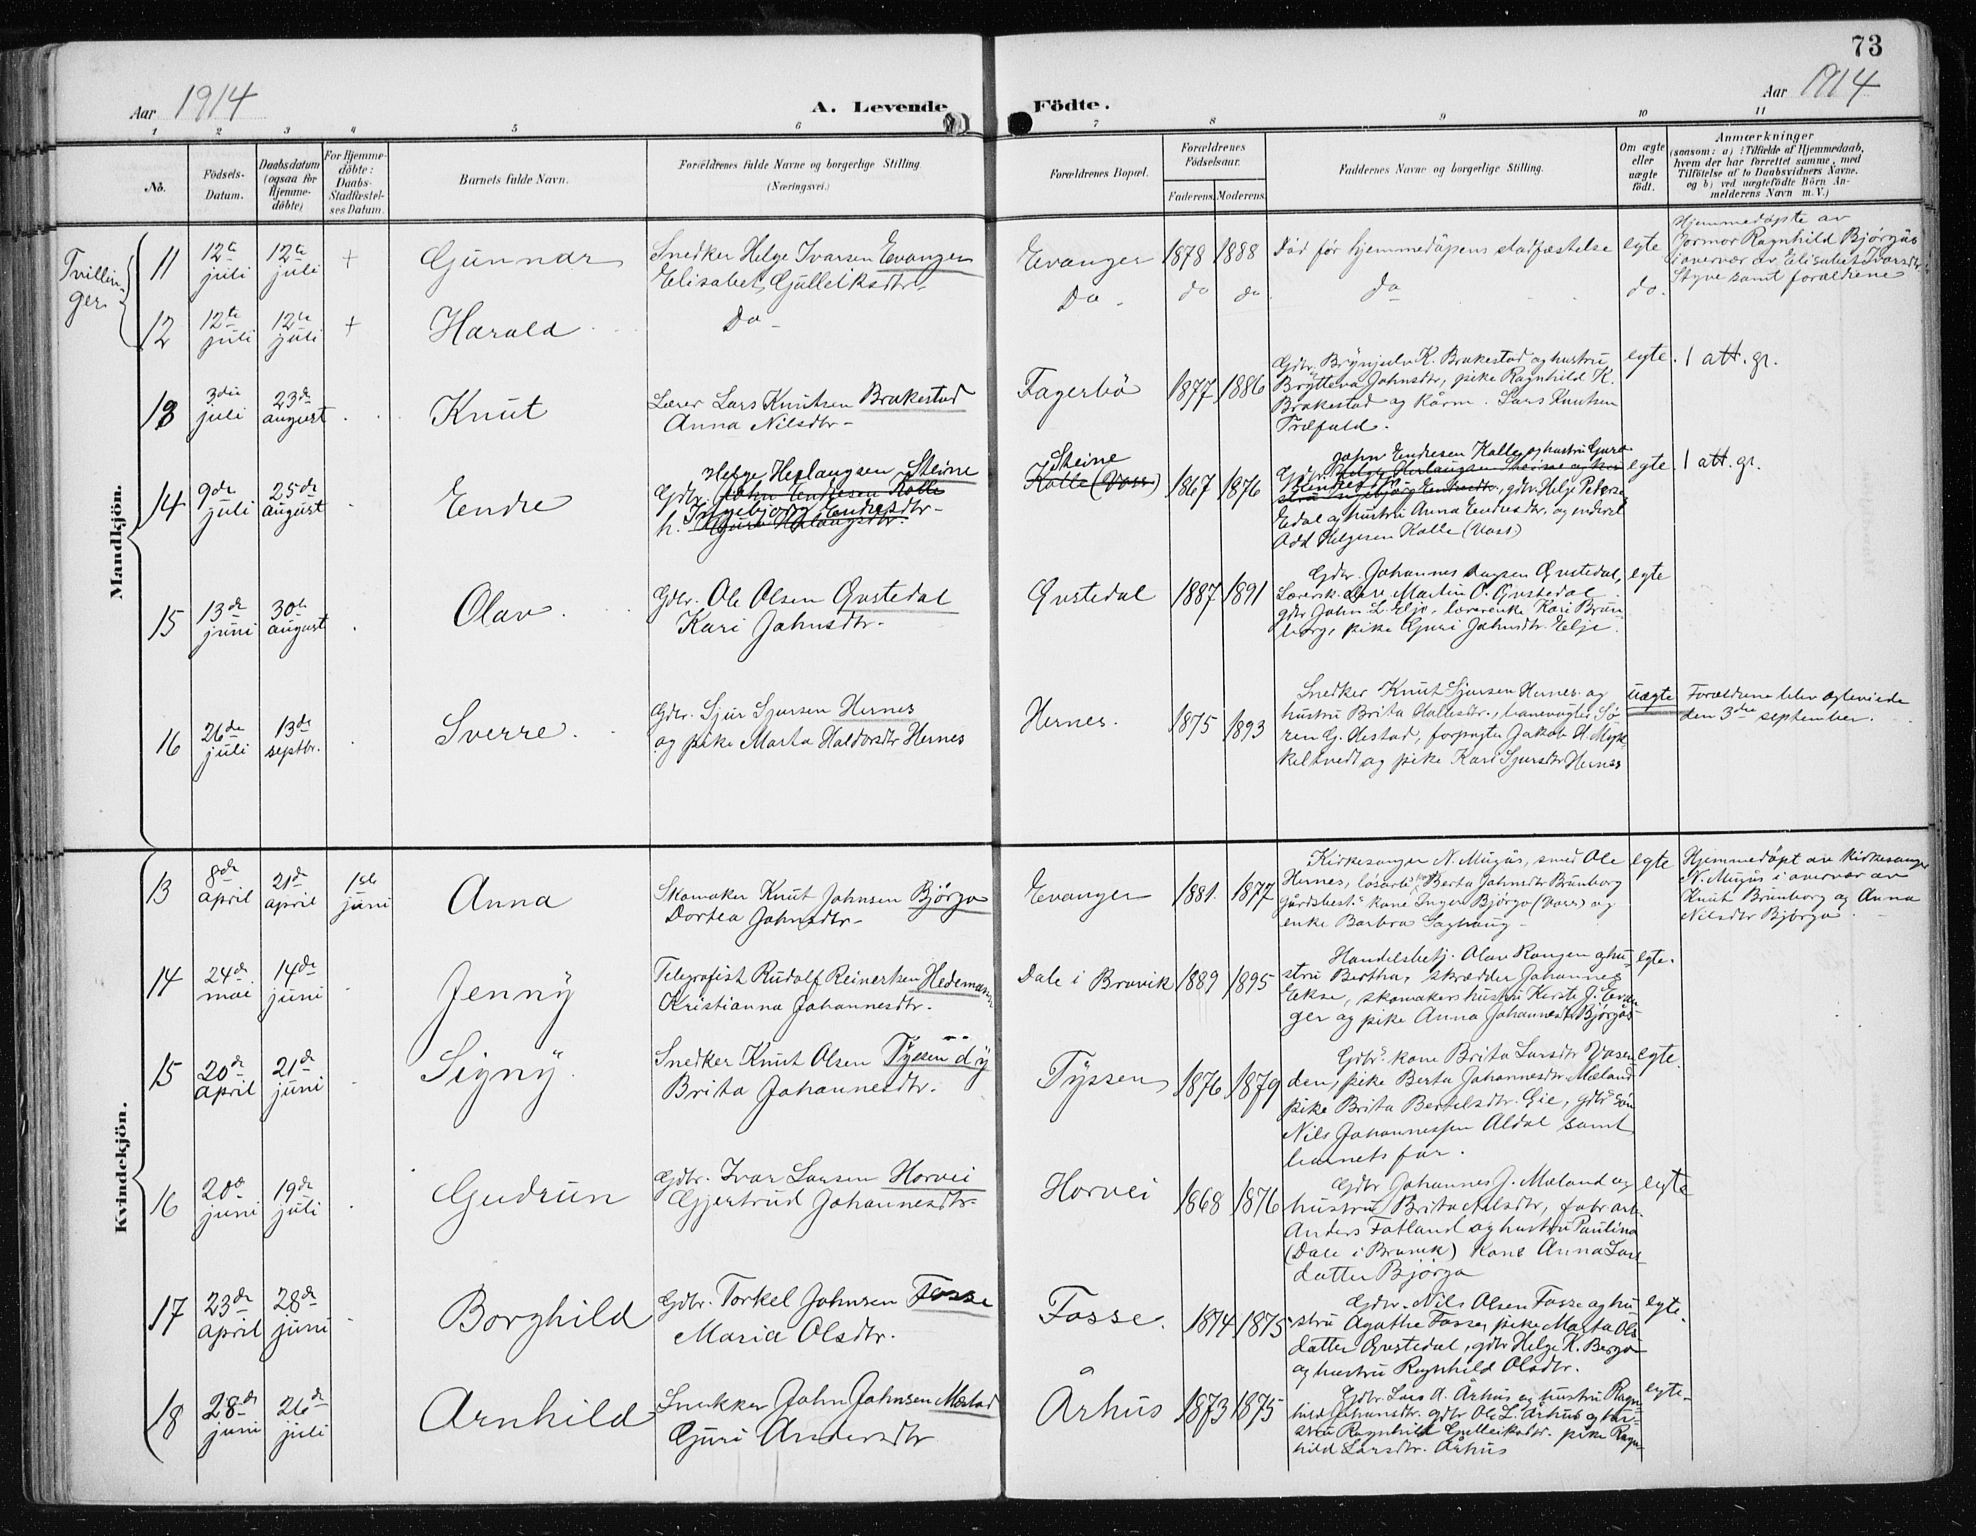 73
Aar 1914
A. Levende Födte.
Aar 1914
1 2 3 4 5 6 7 8 9 10 11
No.
Födsels-Datum.
Daabsdatum (ogsaa for Hjemme-döbte)
For Hjemme-döbte: Daabs-Stadfæstel-ses Datum.
Barnets fulde Navn.
Forældrenes fulde Navne og borgerlige Stilling. (Næringsvei.)
Forældrenes Bopæl.
Forældrenes Födselsaar.
Faderens. Moderens.
Faddernes Navne og borgerlige Stilling.
Om ægte eller uægte födt.
Anmærkninger
(saasom: a) Tilfælde af Hjemmedaab,
hvem der har forrettet samme, med
Tilföielse af to Daabsvidners Navne.
og b) ved uægtefödte Börn An-
melderens Navn m. V.)
Mandkjön.
Tvillin-
ger.
11 12te juli 12te juli + Gunnar
Snedker Helge Ivarsen Evanger
Elisabet Gulleiksdtr.
Evanger 1878 1888 Död før hjemmedåpens stadfæstelse egte
Hjemmedöpte av
formor Ragnhild Bjørgås
i overvær av Elisabet Ivarsdtr
Styve samt forældrene
12 12te juli 12te juli + Harald
Do
Do. do do. do do.
13 3die juli 23de august Knut
Lærer Lars Knutsen Brakestad
Anna Nilsdtr.
Fagerbö 1877 1886
Gdbr. Brynjulv K. Brakestad og hustru
Brytteva Johnsdtr, pike Ragnhild K.
Brakestad og Lars Knutsen
egte. 1 att. gr.
14 9de juli 25de august Endre
Helge Herlaugsen Steine
Gdbr. John Endresen Kolle
h. Ingebjørg Endresdtr.
Steine
Kolle (Voss) 1867 1876
John Endresen Kolle og hustru Guro
Gdbr. Helge Herlaugsen Steine og hu-
stru Ingebjørg Endresdtr., gdbr. Helge Peders.
Edal og hustru Anna Endresdtr. og
Odd Helgesen Kolle (Voss)
egte. 1 att. gr.
15 13de juni 30te august Olav
Gdbr. Ole Olsen Qvstedal
Kari Johnsdtr.
Qvstedal 1887 1891
Gdbr. Johannes Qvstedal,
Martin O. Qvstedal
gdbr John L. Elje, lærerenke Kari Brun-
borg, pike Guri Johnsdtr. Elje.
egte
16 26de juli 13de septbr. Sverre
Gdbr. Sjur Sjursen Hernes
og pike Marta Haldorsdtr Hernes
Hernes. 1875 1893
Snedker Knut Sjursen Hernes og
hustru Brita Hallesdtr., banevogter Sø-
ren G. Hestad, forpagter Jakob H. Myk-
keltvedt og pike Kari Sjursdtr Hernes
uægte
Forældrene blev egteviede
den 3die september.
Kvindekjön.
13 8de april 21de april 1ste juni Anna
Skomaker Knut Johnsen Bjørgo
Dortea Johnsdtr.
Evanger 1881. 1877
Kirkesanger N. Mugås, smed Ole
Hernes, Berta Johnsdtr Brunborg
gårdsbest. kone Inger Bjørgo (Voss) og
enke Barbra Saghaug
egte
Hjemmedöpt av kirkesanger
N. Mugås i overvær av
Knut Brunborg og Anna
Nilsdtr Bjørgo.
14 24de mai 14de juni Jenny
Telegrafist Rudolf Reinertsen Hedemann
Kristianna Johannesdtr.
Dale i Bruvik 1889 1895
Handelsbetj. Olav Rongen og hu-
stru Bertha, skrædder Johannes
Ekse, skomakers hustru Kirste J. Evan-
ger og pike Anna Johannesdtr. Bjørgås
egte.
15 20de april 21de juni Signy
Snedker Knut Olsen Tyssen d. y
Brita Johannesdtr.
Tyssen 1876 1879
Gdbr. kone Brita Larsdtr Vasen-
den, pike Berta Johannesdtr. Mæland
pike Brita Bertelsdtr. Gie, gdbr. sön
Nils Johannessen Aldal samt
barnets far.
egte.
16 20de juni 19de juli Gudrun
Gdbr. Ivar Larsen Horvei
Gjertrud Johannesdtr.
Horvei 1868 1876
Gdbr Johannes J. Mæland og
hustru Brita Nilsdtr, fabr.arb.
Anders Fatland og hustru Paulina
(Dale i Bruvik) kone Anna Lars
datter Bjørgo
egte
17 23de april 28de juni Borghild
Gdbr. Torkel Johnsen Fosse
Maria Olsdtr.
Fosse. 1874 1875
Gdbr. Nils Olsen Fosse og hu-
stru Agathe Fosse, pike Marta Ols
datter Qvstedal, gdbr Helge K. Bergo
og hustru Ragnhild Olsdtr.
egte.
18 28de juni 26de juli Arnhild
Snekker John Johnsen Mestad
Guri Andersdtr
Århus 1873 1875
Gdbr. Lars A. Århus og hustru Ragn-
hild Johansdtr. gdbr Ole L. Århus og hu-
stru Ragnhild Gulleiksdtr. pike Ragn-
hild Larsdtr. Århus
egte